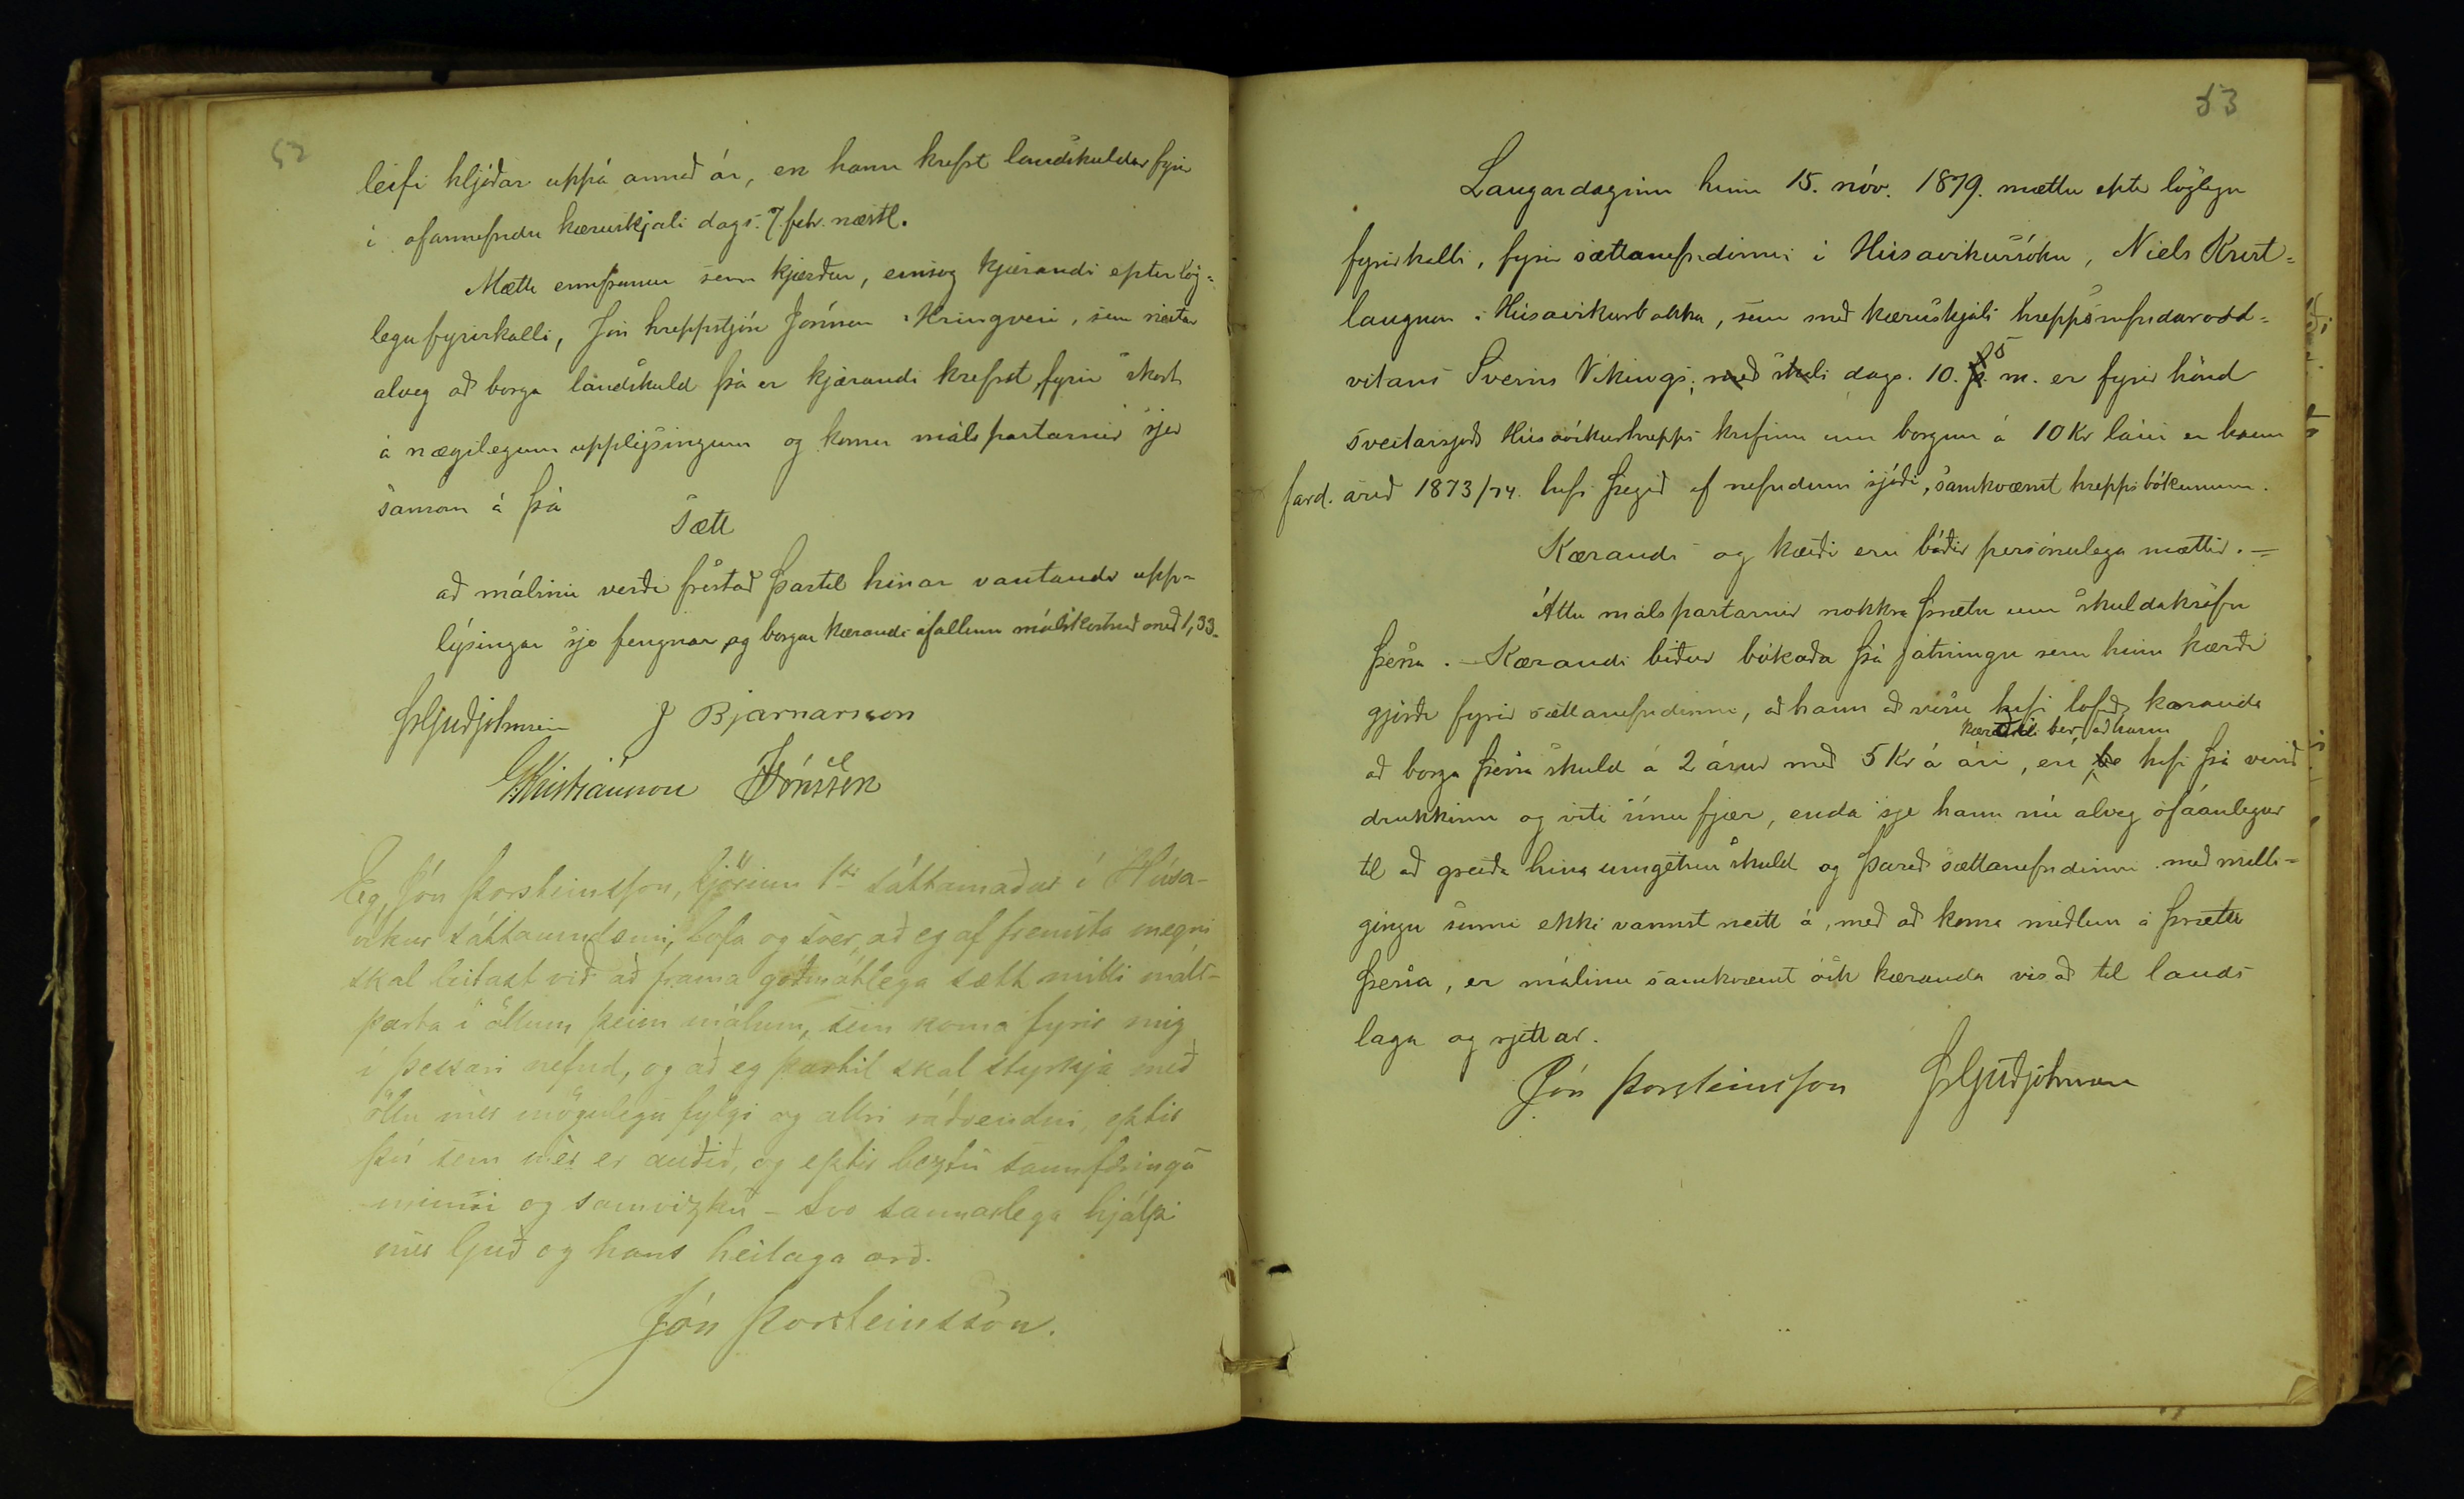 52
leifi hljóðar uppá annað ár, en hann krefst landskuldar fyrir
í ofannefndu kæruskjali dags. 7. febr. næstl.
Mætti ennfremur sem kjærður, einsog kjærandi eptir lög-
legu fyrirkalli, Jón hreppstjóri Jónsson í Hringveri, sem neitar
alveg að borga landskuld þá er kjærandi krefst, fyrir skort
á nægilegum upplýsingum og koma málspartarnir sjer
saman á þá
Sætt
að málinu verði frestað þartil hinar vantandi upp-
lýsingar sje fengnar og borgar kærandi áfallinn málskostnað með 1,33.
Þ Guðjohnsen J Bjarnarson
Kristjánsson Jónsson
Eg, Jón Þorsteinsson, kjörinn 1sti sáttamaður í Húsa-
víkur sáttaumdæmi, lofa og sver, að eg af fremsta megni
skal leitast við að frama góðmótlega sætt milli máls-
parta í öllum þeim málum, sem koma fyrir mig
í þessari nefnd, og að eg þartil skal styrkja með
öllu mér mögulegu fylgi og allri ráðvendni, eptir
því sem mér er auðið, og eptir beztu sannfæringu
minni og samvizku - Svo sannarlega hjálpi
mér Guð og hans heilaga orð.
Jón Þorsteinsson.
53
Laugardaginn hinn 15. nóv. 1879. mættu eptir löglegu
fyrirkalli, fyrir sættanefndinni í Húsavíkursókn, Niels Krist-
laugsson í Húsavíkurbakka, sem með kæruskjali hreppsnefndarodd-
vitans Sveins Víkings, með skali dags. 10. þ. 5 m. er fyrir hönd
sveitarsjóðs Húsavíkurhrepps krafinn um borgun á 10 Kr láni er hann
fard. árið 1873/74. hefi þegið af nefndum sjóði, samkvæmt hreppsbókunum.
Kærandi og kærði eru báðir persónulega mættir. -
Áttu málspartarnir nokkra þrætu um skuldakröfu
þessa. - Kærandi biður bókaða þá játningu sem hinn kærði
gjörði fyrir sættanefndinni, að hann að vísu hefi lofað kæranda
kærði ber, að hann
að borga þessa skuld á 2 árum með 5 Kr á ári, en hefi þá verið
drukkinn og viti sínu fjær, enda sje hann nú alveg ófáanlegur
til að greiða hina umgetnu skuld og þareð sættanefndinni með milli-
göngu sinni ekki vannst neitt á, með að koma miðlun á þrætu
þessa, er málinu samkvæmt ósk kæranda vísað til lands
laga og rjettar.
Jón Þorsteinsson Þ Guðjohnsen